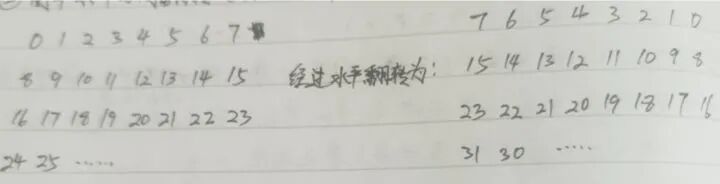 0 1 2 3 4 5 6 7
8 9 10 11 12 13 14 15
16 17 18 19 20 21 22 23
24 25 ······
经过水平翻转为:
7 6 5 4 3 2 1 0
15 14 13 12 11 10 9 8
23 22 21 20 19 18 17 16
31 30 ······